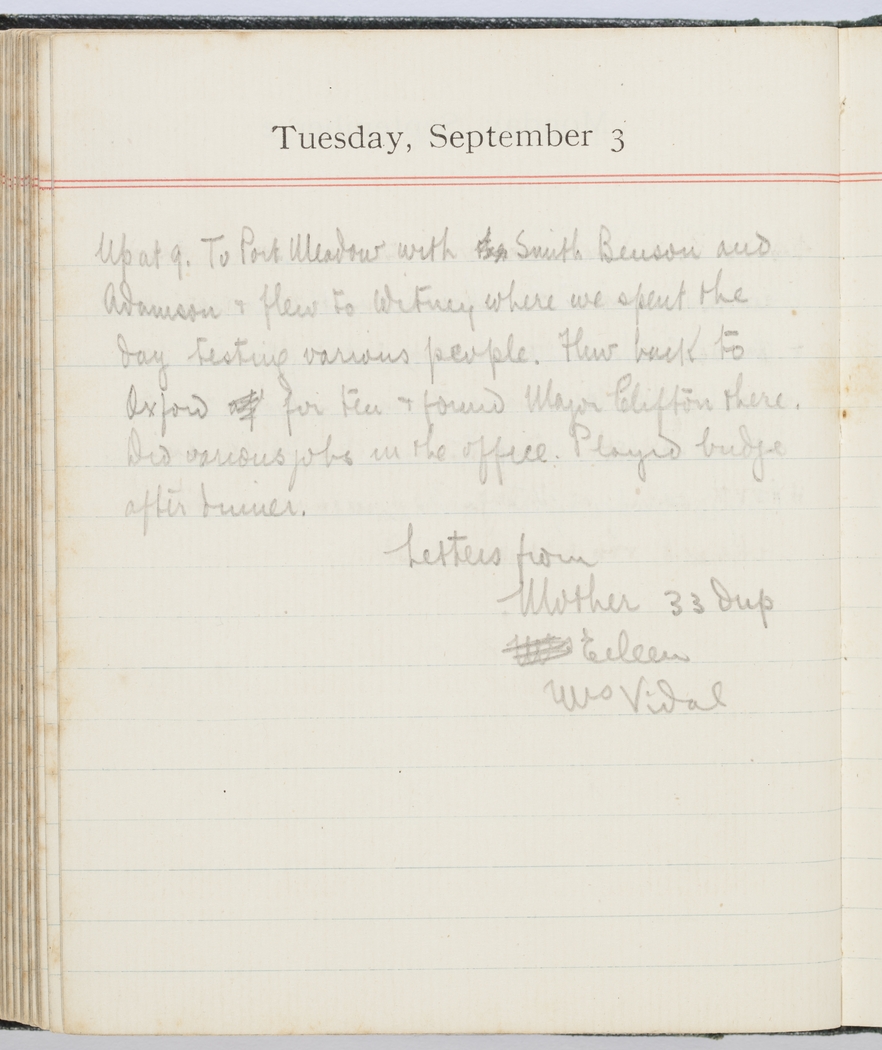 Tuesday, September 3
Up at 9. To Port Meadow with Smith Benson and
Adamson + flew to Witney where we spent the
day testing various people. Flew back to
Oxford for tea + found Major Clifton there.
Did various jobs in the office. Played bridge
after dinner.
Letters from
Mother 33 dup
Eileen
Mrs Vidal